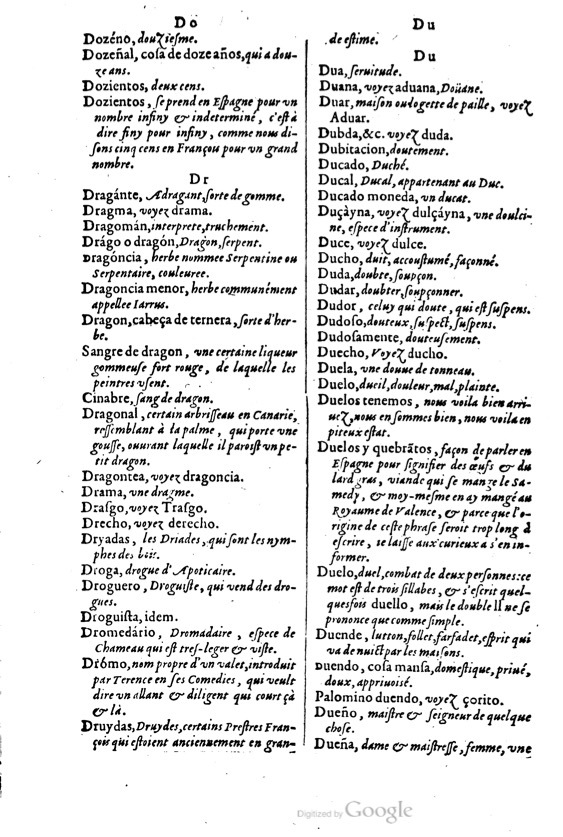 Do
Dozéno, douziesme.
Dozeñal, cosa de doze años, qui a dou-
ze ans.
Dozientos, deux cens.
Dozientos, se prend en Espagne pour vn
nombre infiny & indeterminé, c'est à
dire finy pour infiny, comme nous di-
sons cinq cens en Françou pour vn grand
nombre.
Dr
Dragánte, Adragant, sorte de gomme.
Dragma, voyez drama.
Dragomán, interprete, truchement.
Drágo o dragón, Dragon, serpent.
Dragóncia, herbe nommee Serpentine ou
Serpentaire, couleuree.
Dragoncia menor, herbe communément
appellee Iarrus.
Dragon, cabeça de ternera, sorte d'her-
be.
Sangre de dragon, vne certaine liqueur
gommeuse fort rouge, de laquelle les
peintres vsent.
Cinabre, sang de dragon.
Dragonal, certain arbrisseau en Canarie,
ressemblant à la palme, qui porte vne
gousse, ouurant laquelle il paroist vn pe-
tit dragon.
Dragontea, voyez dragoncia.
Drama, vne dragme.
Drasgo, voyez Trasgo.
Drecho, voyez derecho.
Dryadas, les Driades, qui sont les nym-
phes des bois.
Droga, drogue d'Apoticaire.
Droguero, Droguiste, qui vend des dro-
gues.
Droguista, idem.
Dromedário, Dromadaire, espece de
Chameau qui est tres-leger & viste.
Drómo, nom propre d'vn valet, introduit
par Terence en ses Comedies, qui veult
dire vn allant & diligent qui court çà
& là.
Druydas, Druydes, certains Prestres Fran-
çois qui estoient anciennement en gran-
Du
de estime.
Du
Dua, seruitude.
Duana, voyez aduana, Doüane.
Duar, maison ou logette de paille, voyez
Aduar.
Dubda, &c. voyez duda.
Dubitacion, doutement.
Ducado, Duché.
Ducal, Ducal, appartenant au Duc.
Ducado moneda, vn ducat.
Duçàyna, voyez dulçáyna, vne doulci-
ne, espece d'instrument.
Duce, voyez dulce.
Ducho, duit, accoustumé, façonné.
Duda, doubte, soupçon.
Dudar, doubter, soupçonner.
Dudor, celuy qui doute, qui est suspens.
Dudoso, douteux, suspect, suspens.
Dudosamente, douteusement.
Duecho, Voyez ducho.
Duela, vne douue de tonneau.
Duelo, dueil, douleur, mal, plainte.
Duelos tenemos, nous voila bien arri-
uez, nous en sommes bien, nous voila en
piteux estat.
Duelos y quebrãtos, façon de parler en
Espagne pour signifier des œufs & du
lard gras, viande qui se mange le Sa-
medy, & moy-mesme en ay mangé au
Royaume de Valence, & parce que l'o-
rigine de ceste phrase seroit trop long à
escrire, se laisse aux curieux a s'en in-
former.
Duelo, duel, combat de deux personnes: ce
mot est de trois sillabes, & s'escrit quel-
quesfois duello, mais le double ll ne se
prononce que comme simple.
Duende, lutton, follet, farfadet, esprit qui
va de nuict par les maisons.
Duendo, cosa mansa, domestique, priué,
doux, appriuoisé.
Palomino duendo, voyez çorito.
Dueño, maistre & seigneur de quelque
chose.
Dueña, dame & maistresse, femme, vne
Digitized by Google